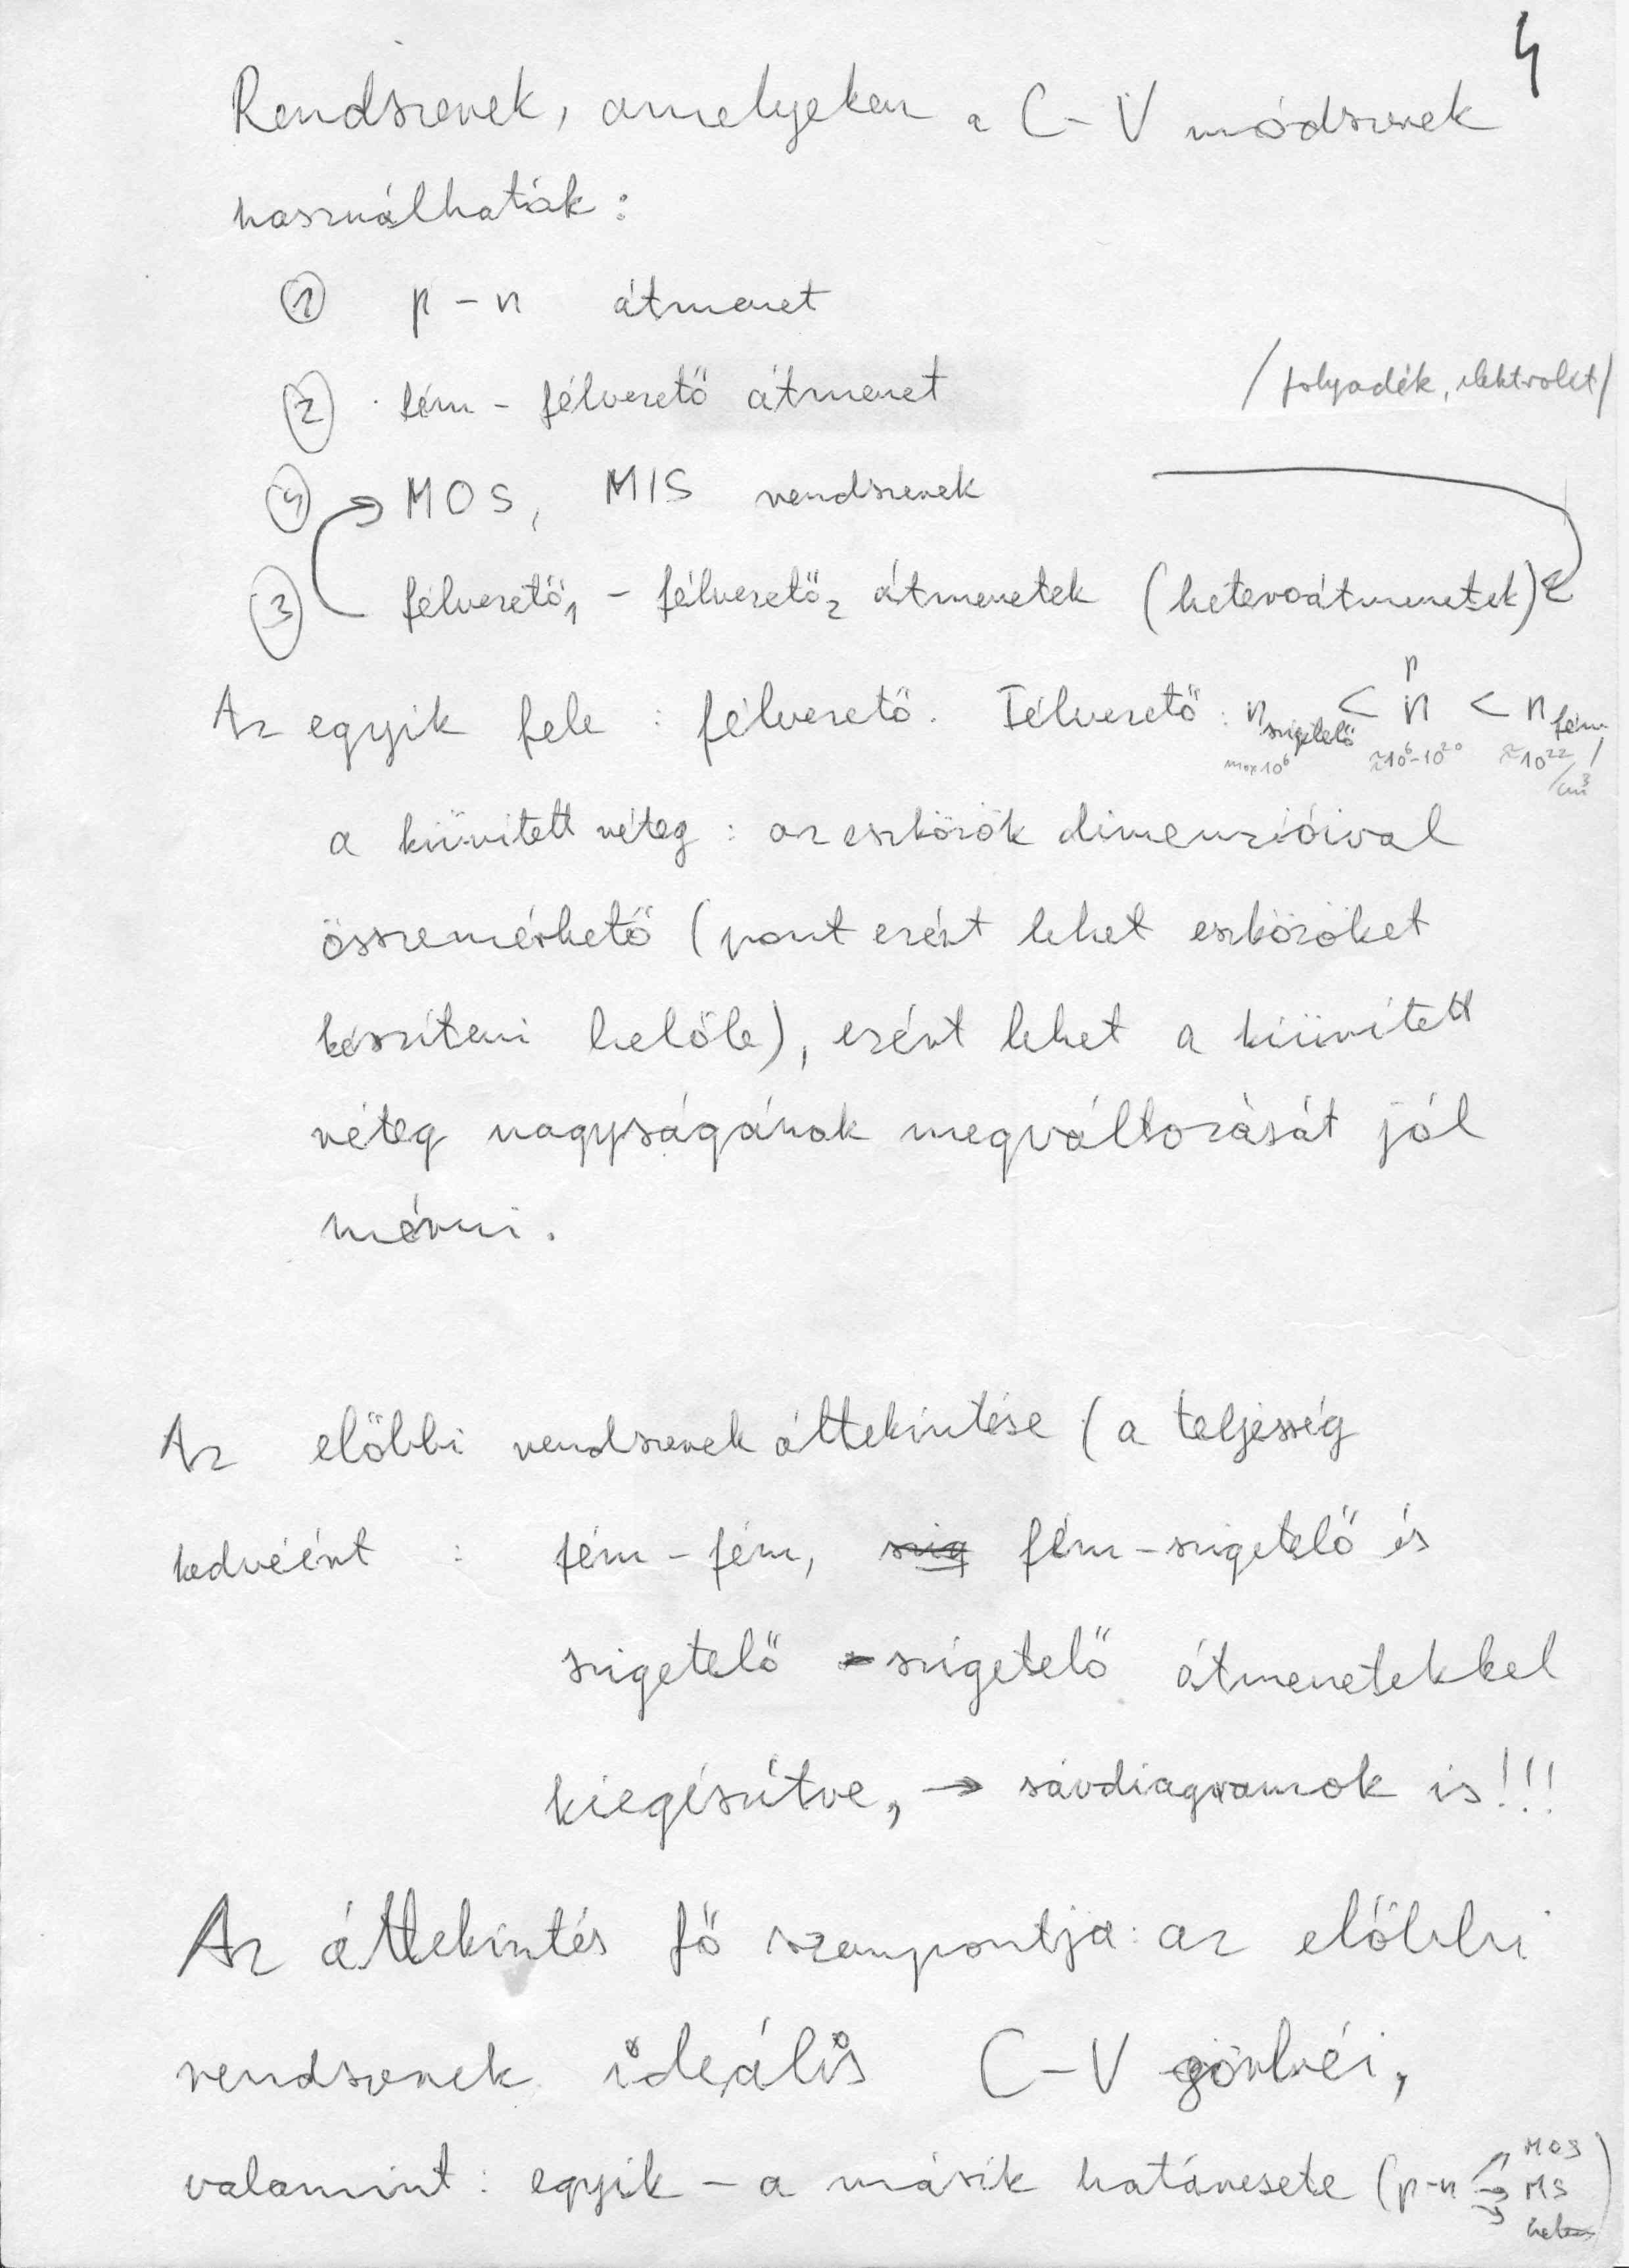 4
Rendszerek, amelyeken a C-V módszerek
használhatók:
① p-n átmenet
② fém - félvezető átmenet /folyadék, elektrolit/
④ → MOS, MIS rendszerek
③ félvezető₁ - félvezető₂ átmenetek (heteroátmenetek)
Az egyik fele : félvezető. Félvezető : n szigetelő < n < n fém
p
max 10⁶ ≈10⁶-10²⁰ ≈10²²/cm³
a kiürített réteg : az eszközök dimenzióival
összemérhető (pont ezért lehet eszközöket
készíteni belőle), ezért lehet a kiürített
réteg nagyságának megváltozását jól
mérni.
Az előbbi rendszerek áttekintése (a teljesség
kedvéért : fém - fém, szig fém - szigetelő és
szigetelő - szigetelő átmenetekkel
kiegészítve, → sávdiagramok is!!!
Az áttekintés fő szempontja: az előbbi
rendszerek ideális C-V görbéi,
valamint : egyik - a másik határesete (p-n → MOS
→ MS
→ hetero)